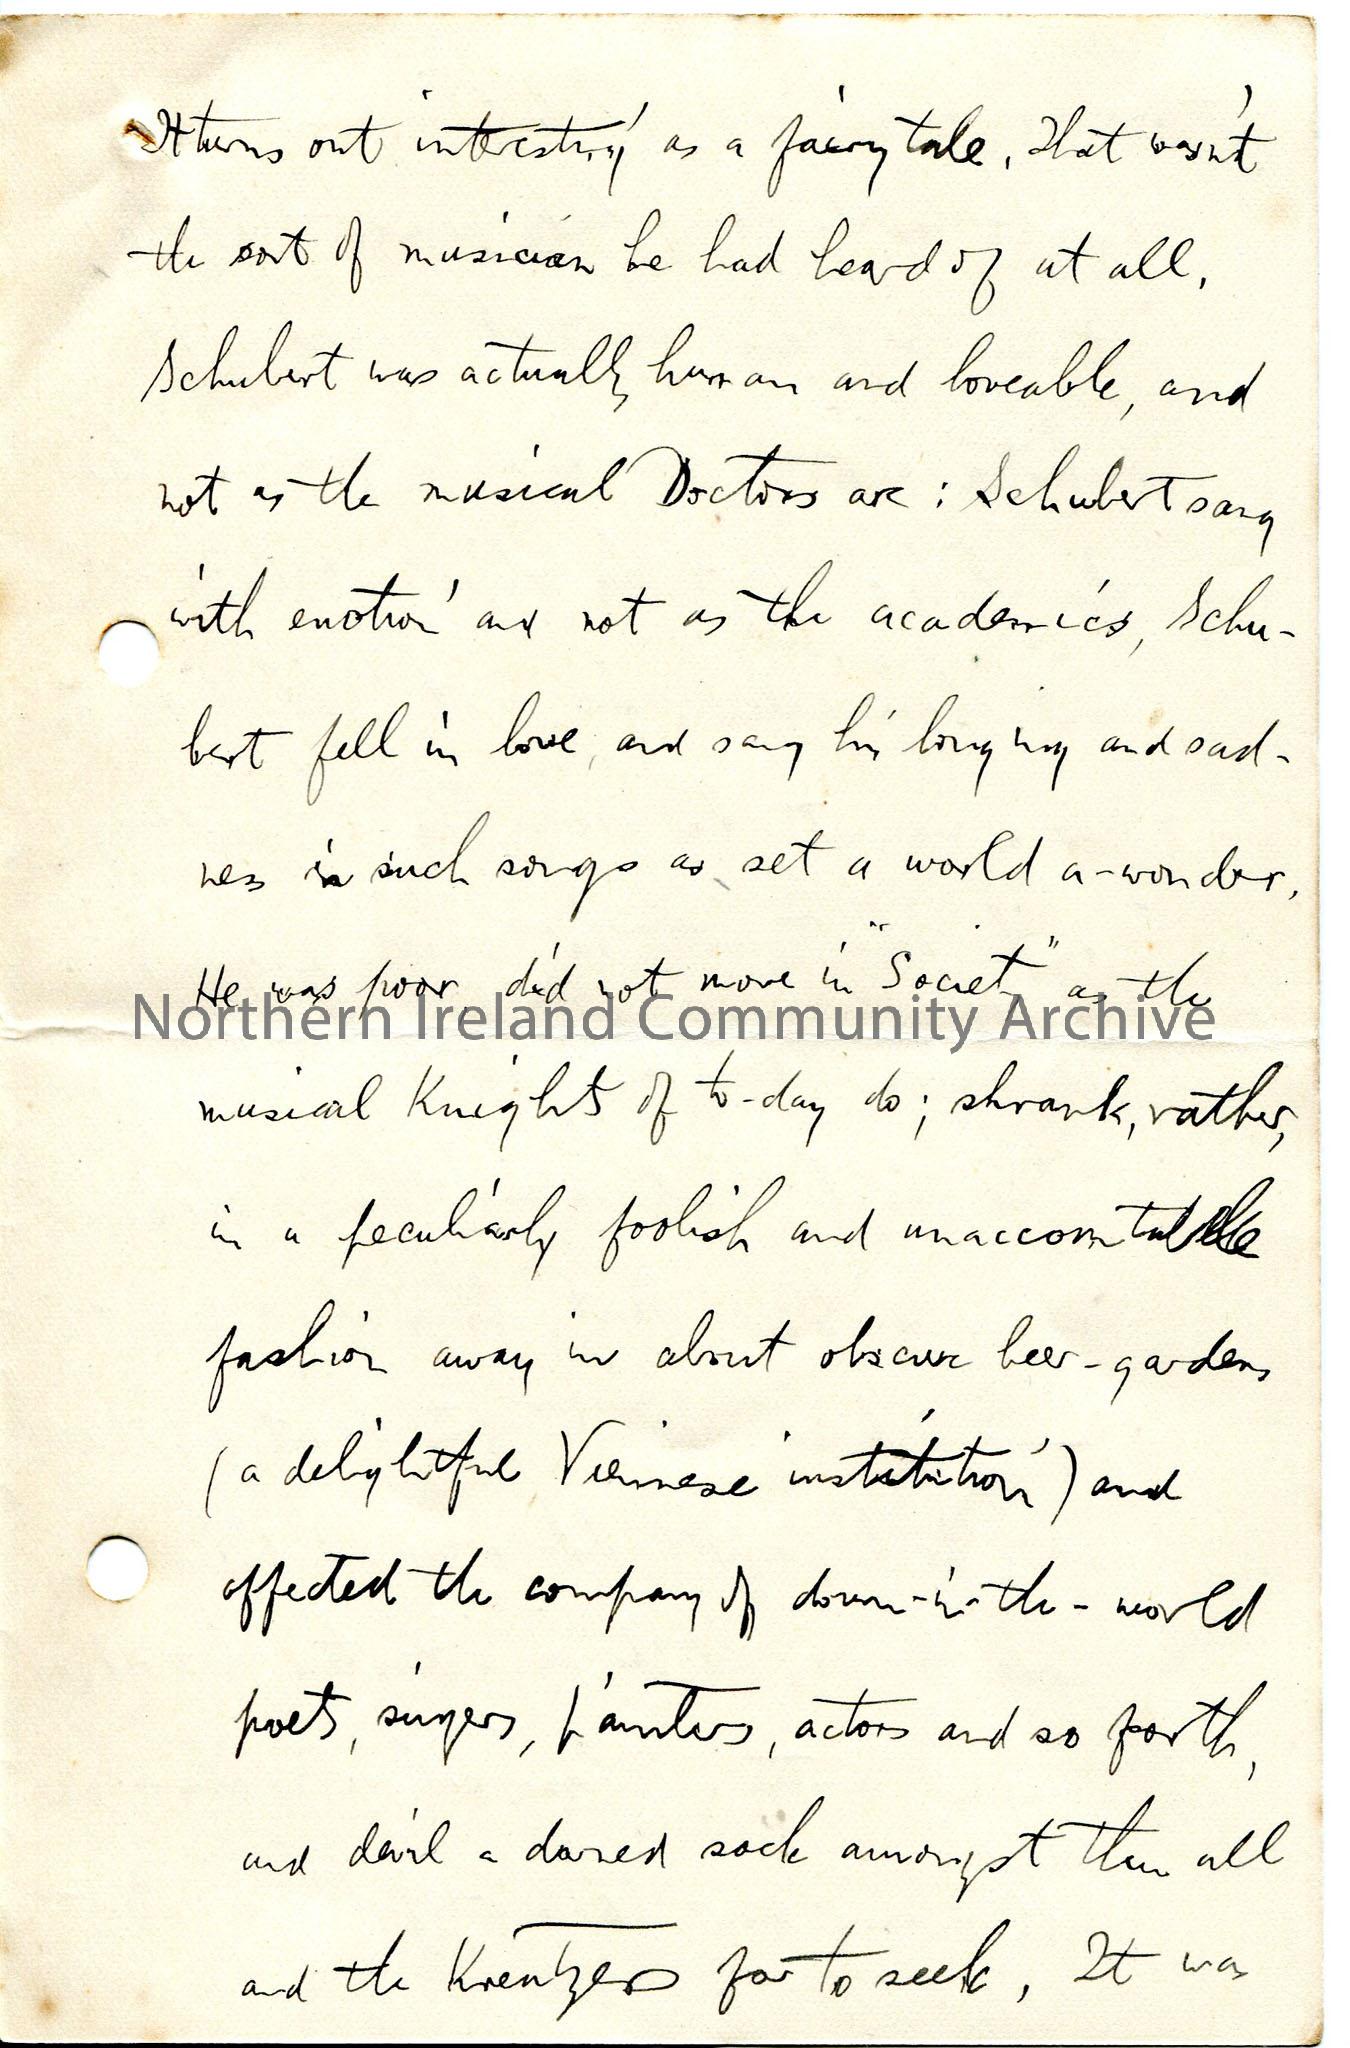 It turns out interesting as a fairy tale. That wasn't
the sort of musician he had heard of at all.
Schubert was actually human and loveable, and
not as the musical Doctors are: Schubert sang
with emotion and not as the academics, Schu-
bert fell in love, and sang his longing and sad-
ness in such songs as set a world a-wonder.
He was poor did not move in "Society" as the
Northern Ireland Community Archive
musical Knights of to-day do; shrank, rather,
in a peculiarly foolish and unaccountable
fashion away in about obscure beer-gardens
(a delightful Viennese institution) and
affected the company of down-in-the-world
poets, singers, painters, actors and so forth,
and devil a darned sock amongst them all
and the Kreutzers far to seek. It was